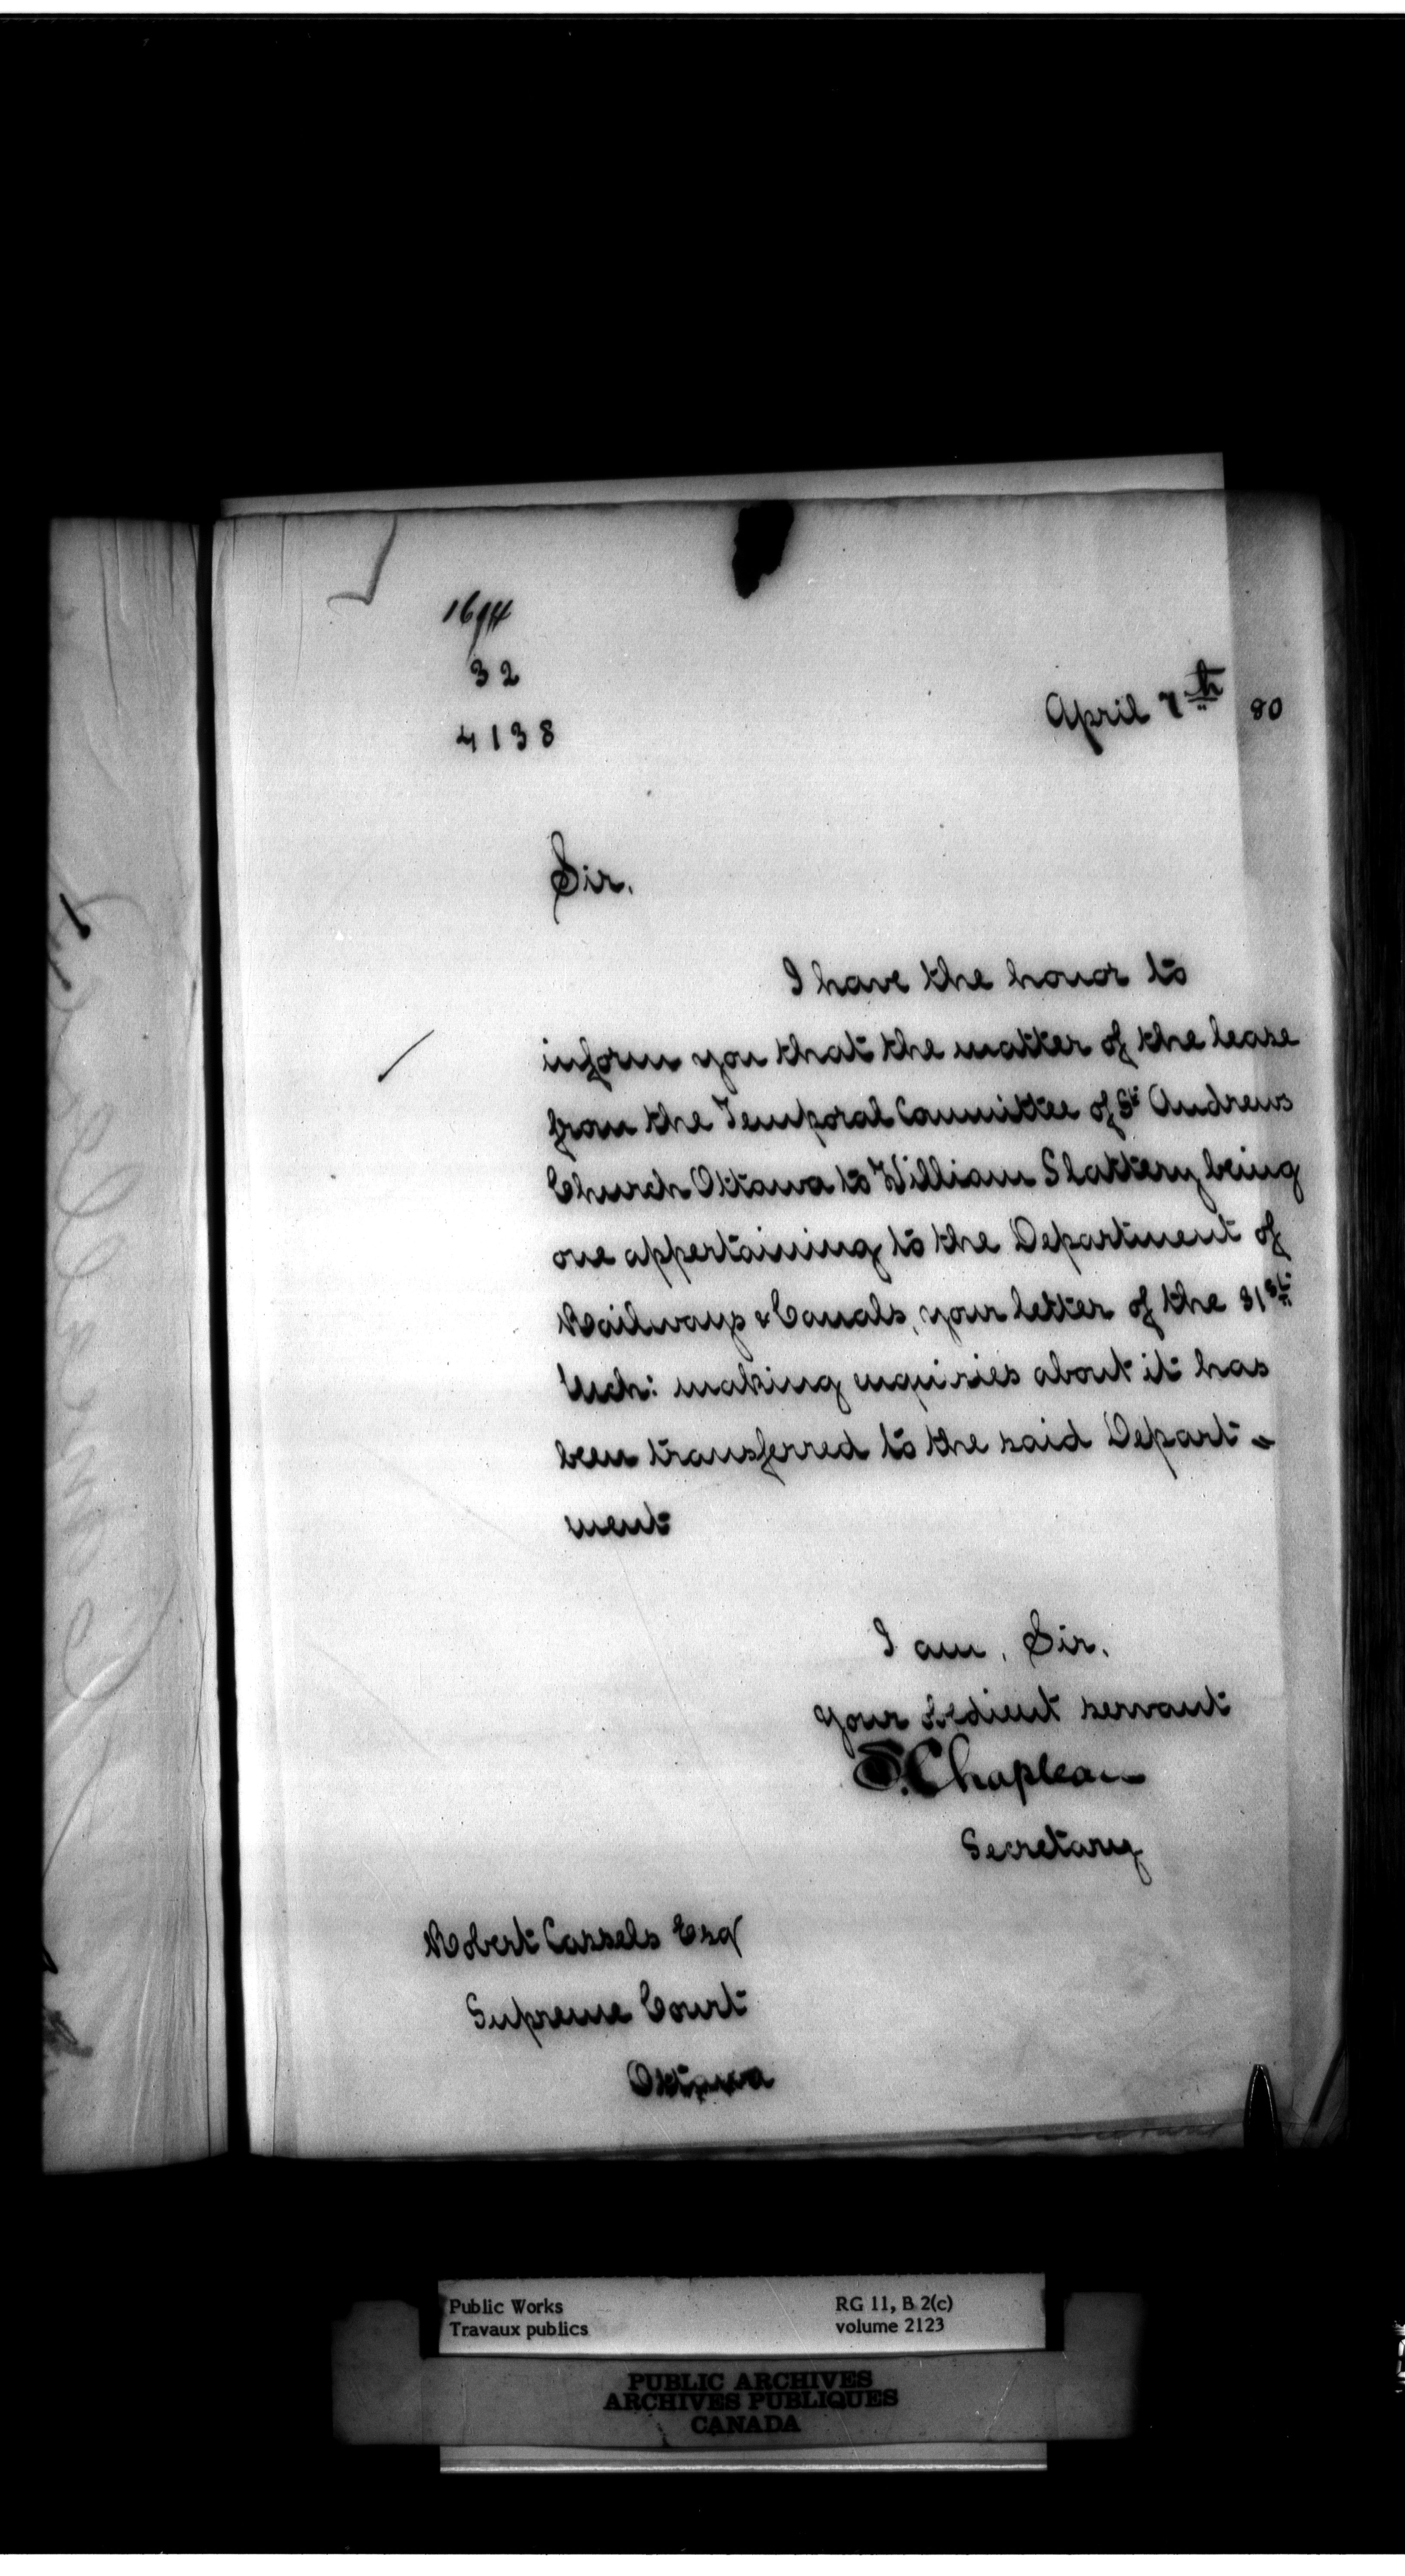 32
4138
April 7th 80
Sir.
I have the honor to
inform you that the matter of the lease
from the Temporal Committee of St Andrews
Church Ottawa to William Slattery being
one appertaining to the Department of
Railways & Canals, your letter of the 31st
Ulto: making enquiries about it has
been transferred to the said Depart-
ment
I am, Sir.
Your obedient servant
S. Chapleau
Secretary
Robert Cassels Esq
Supreme Court
Ottawa
Public Works
Travaux publics
RG 11, B 2(c)
volume 2123
PUBLIC ARCHIVES
ARCHIVES PUBLIQUES
CANADA